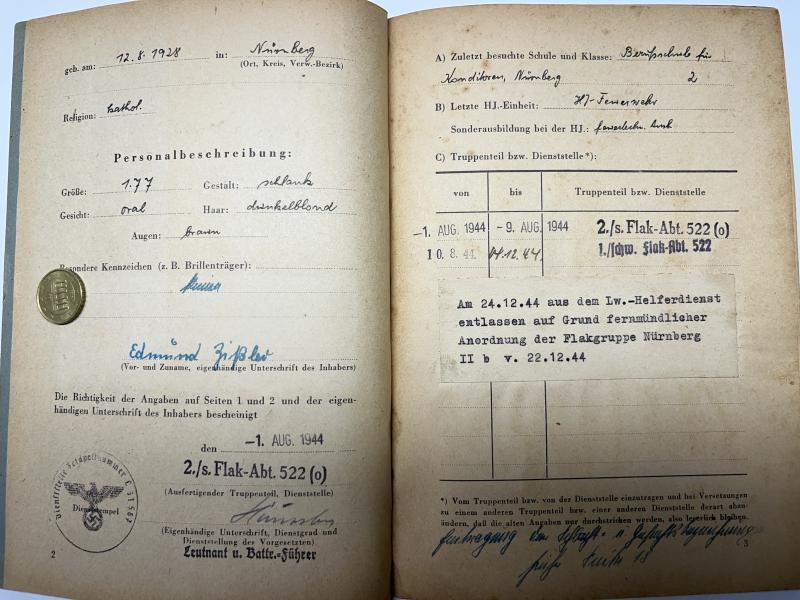 geb. am: 12.8.1928 in: Nürnberg
(Ort, Kreis, Verw.-Bezirk)
Religion: kathol.
Personalbeschreibung:
Größe: 1.77 Gestalt: schlank
Gesicht: oval Haar: dunkelblond
Augen: braun
Besondere Kennzeichen (z. B. Brillenträger):
Keine
Edmund Zißler
(Vor- und Zuname, eigenhändige Unterschrift des Inhabers)
Die Richtigkeit der Angaben auf Seiten 1 und 2 und der eigen-
händigen Unterschrift des Inhabers bescheinigt
den -1. AUG. 1944
2./s. Flak-Abt. 522 (o)
(Ausfertigender Truppenteil, Dienststelle)
Dienststempel
Dienststelle Feldpostnummer
(Eigenhändige Unterschrift, Dienstgrad und
Dienststellung des Vorgesetzten)
Leutnant u. Battr.-Führer
2
A) Zuletzt besuchte Schule und Klasse: Berufsschule für
Konditoren, Nürnberg 2
B) Letzte HJ.-Einheit: HJ-Feuerwehr
Sonderausbildung bei der HJ.:
C) Truppenteil bzw. Dienststelle*):
von bis Truppenteil bzw. Dienststelle
-1. AUG. 1944 -9. AUG. 1944 2./s. Flak-Abt. 522 (o)
10.8.44. 24.12.44. 1./schw. Flak-Abt. 522
Am 24.12.44 aus dem Lw.-Helferdienst
entlassen auf Grund fernmündlicher
Anordnung der Flakgruppe Nürnberg
II b v. 22.12.44
*) Vom Truppenteil bzw. von der Dienststelle einzutragen und bei Versetzungen
zu einem anderen Truppenteil bzw. einer anderen Dienststelle derart aban-
ändern, daß die alten Angaben nur durchstrichen werden, also leserlich bleiben.
Eintragung der
siehe Seite
3